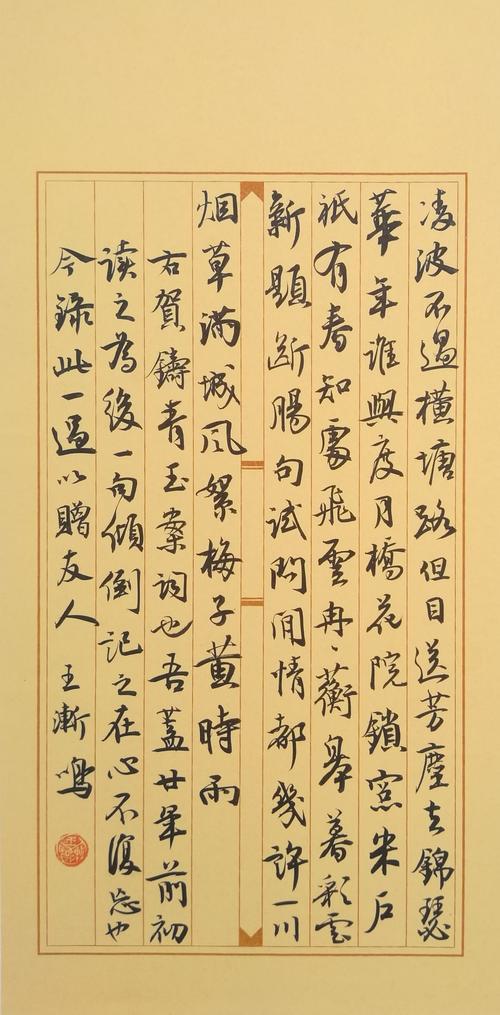 凌波不過橫塘路但目送芳塵去錦瑟
華年誰與度月橋花院鎖窓朱户
祇有春知處飛雲冉〻蘅皋暮彩雲
新題斷腸句試問閒情都幾許一川
烟草滿城风絮梅子黄時雨
右賀鑄青玉案詞也吾蓋廿年前初
读之為後一句傾倒記之在心不復忘也
今錄此一過以贈友人 王漸鳴